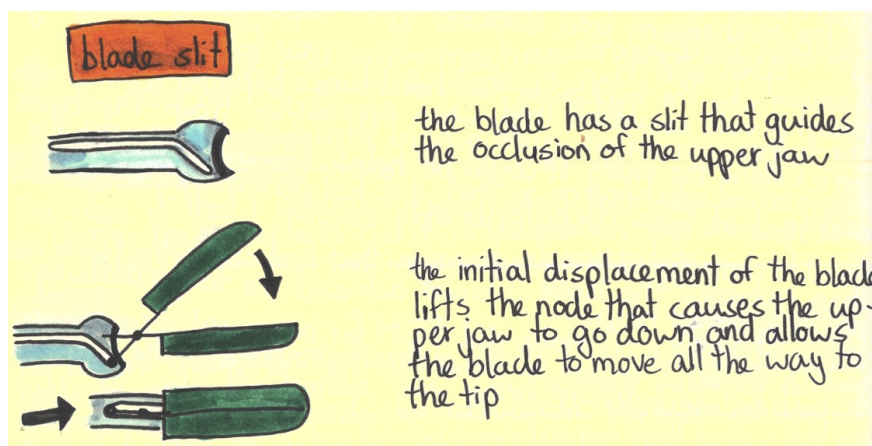 blade slit
the blade has a slit that guides
the occlusion of the upper jaw
the initial displacement of the blade
lifts the node that causes the up-
per jaw to go down and allows
the blade to move all the way to
the tip